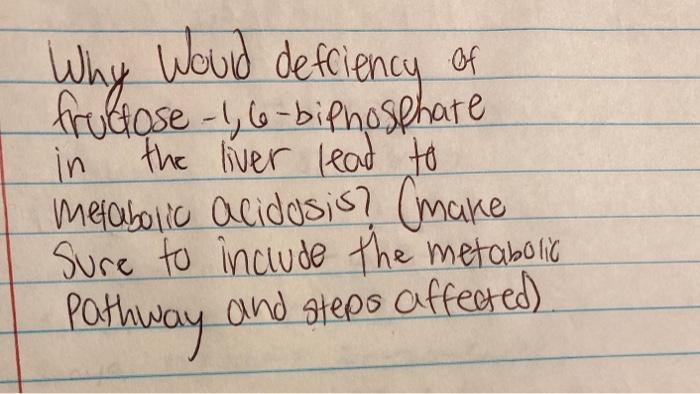 Why Would defciency of
fructose-1,6-biphosphate
in the liver lead to
metabolic acidosis? (make
Sure to include the metabolic
Pathway and steps affected)